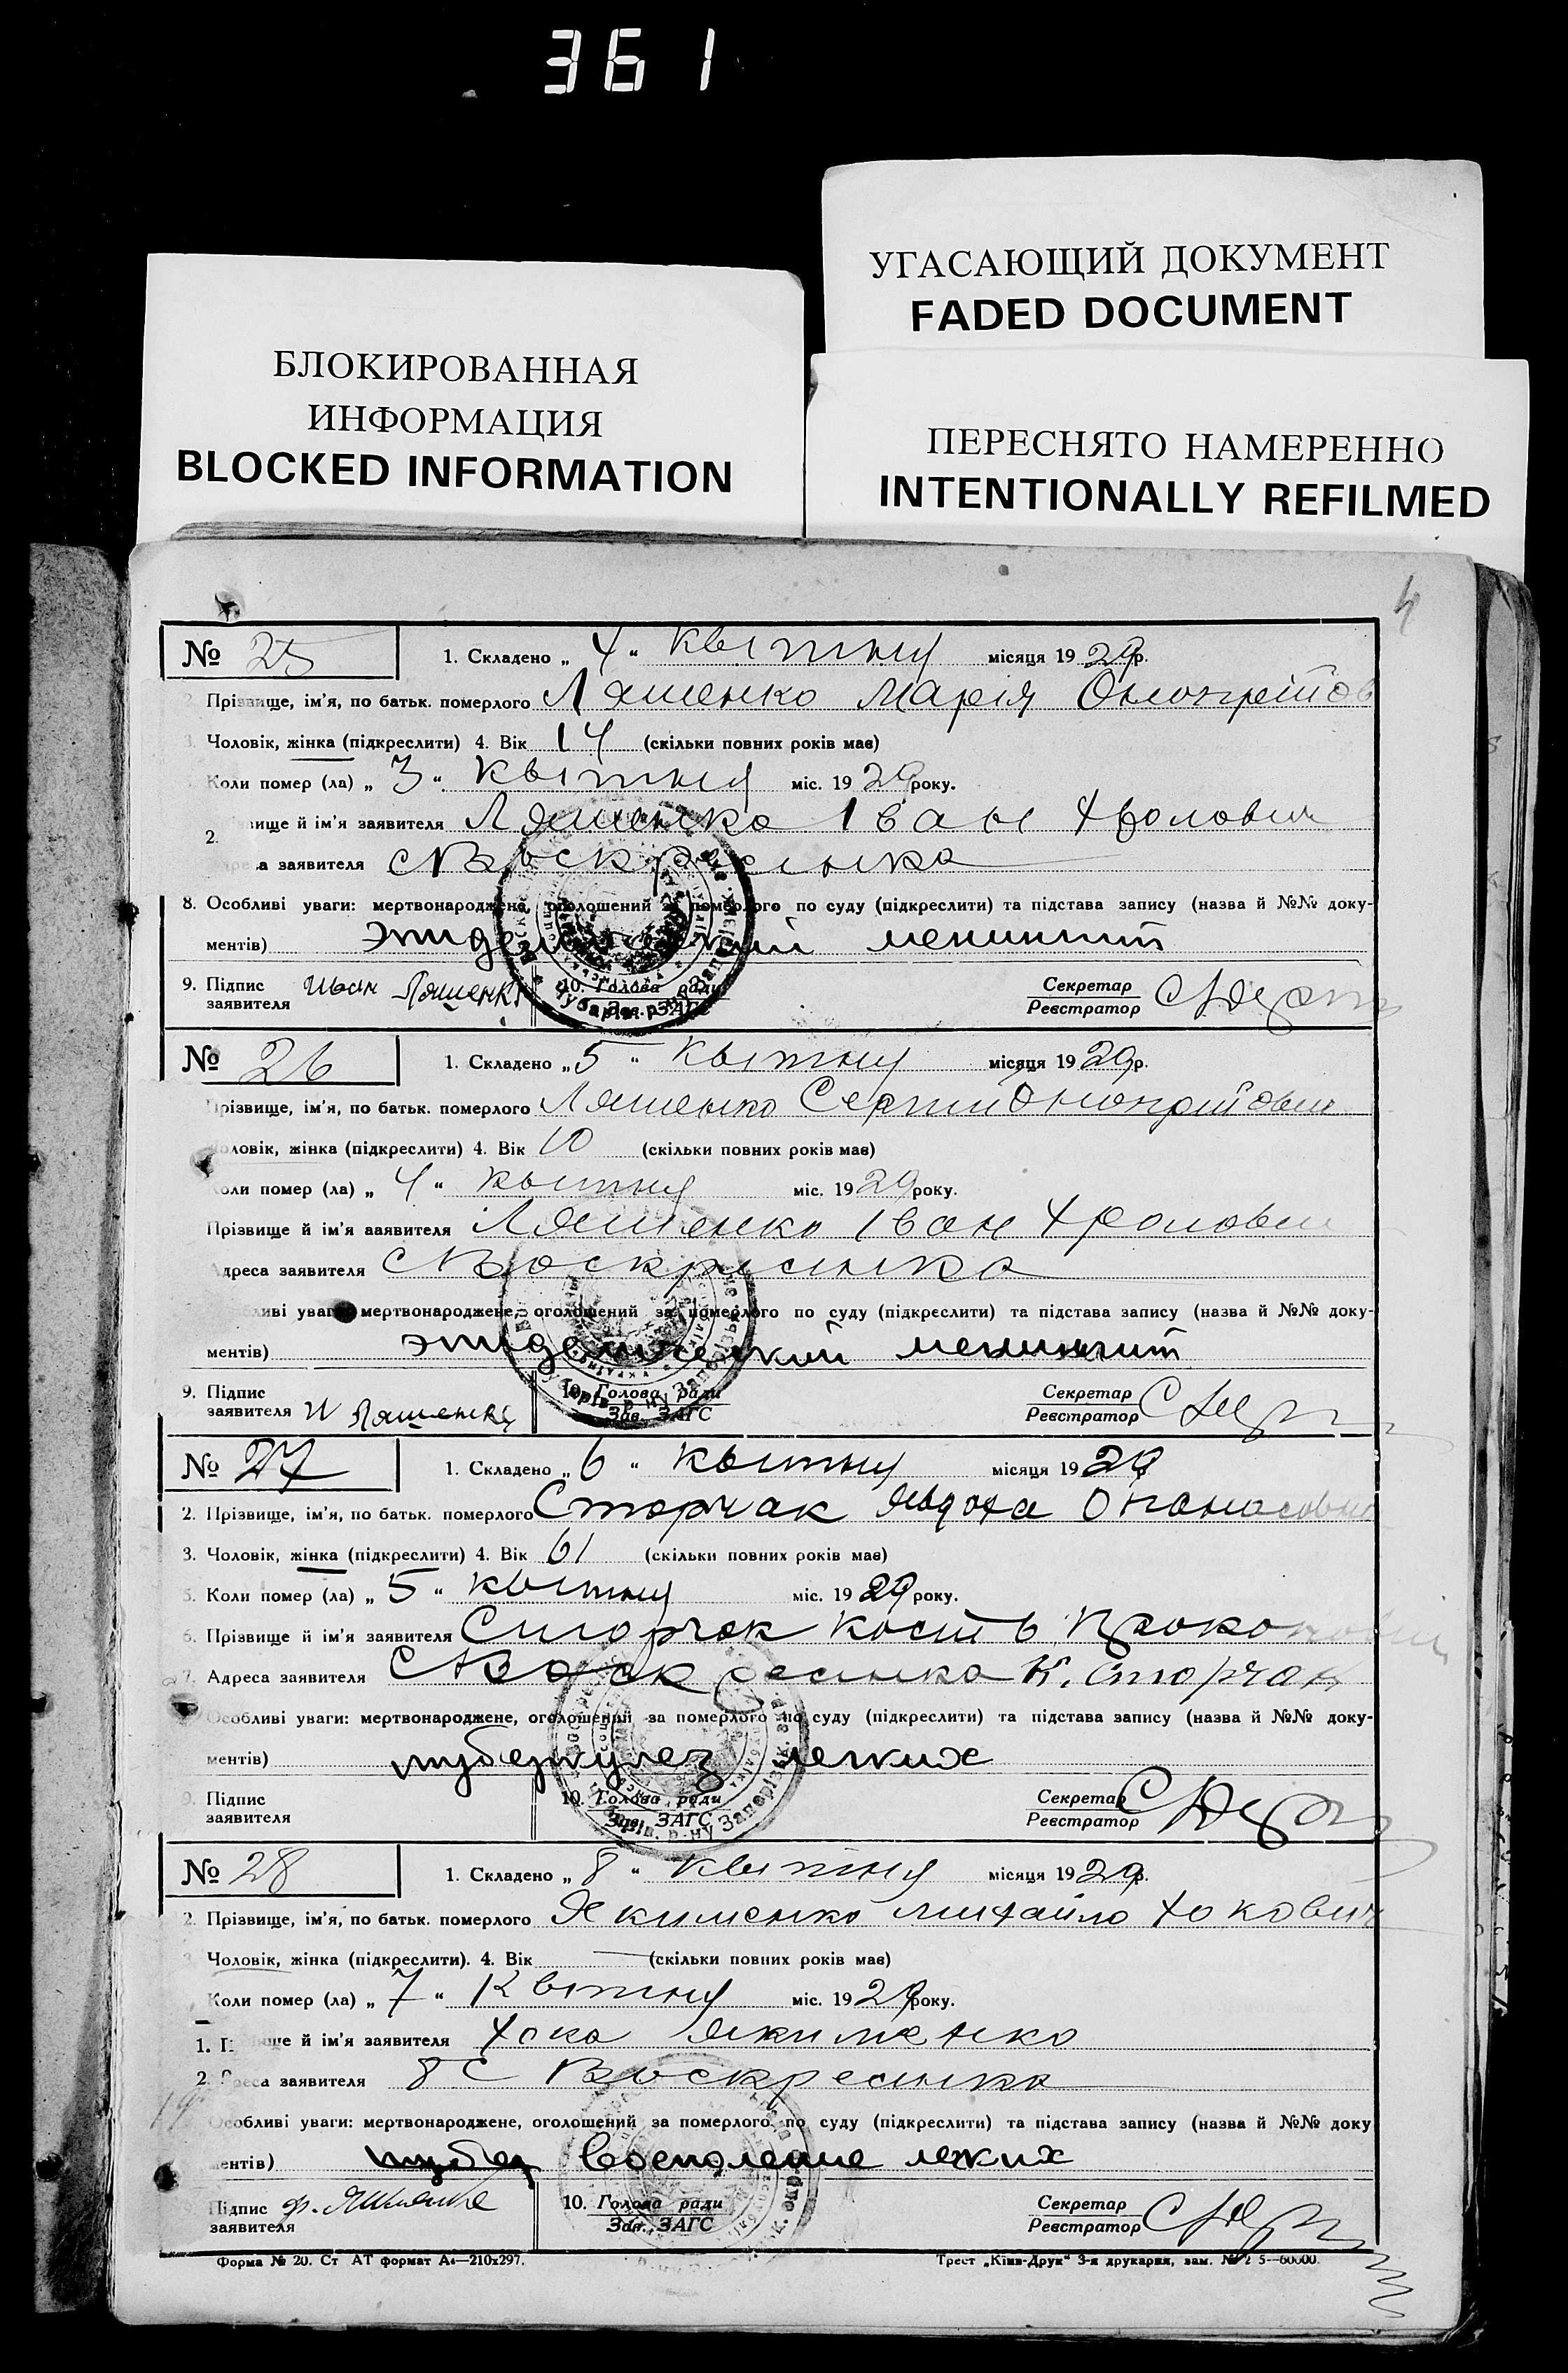 361
УГАСАЮЩИЙ ДОКУМЕНТ
FADED DOCUMENT
БЛОКИРОВАННАЯ
ИНФОРМАЦИЯ
BLOCKED INFORMATION
ПЕРЕСНЯТО НАМЕРЕННО
INTENTIONALLY REFILMED
4
№ 25 1. Складено „ 4 “ Квітня місяця 19 29 р.
2. Прізвище, ім'я, по батьк. померлого Ляшенко Марія
3. Чоловік, жінка (підкреслити) 4. Вік 14 (скільки повних років має)
Коли помер (ла) „ 3 “ Квітня міс. 19 29 року.
вище й ім'я заявителя Ляшенко Іван Хролович
2. а заявителя с Воскресенка
8. Особливі уваги: мертвонароджене, оголошений за померлого по суду (підкреслити) та підстава запису (назва й №№ доку-
ментів) эпидемический менингит
9. Підпис заявителя Иван Ляшенко 10. Голова ради Зав. ЗАГС Секретар Реєстратор
№ 26 1. Складено „ 5 “ Квітня місяця 19 29 р.
Прізвище, ім'я, по батьк. померлого Ляшенко Сергій
Чоловік, жінка (підкреслити) 4. Вік 10 (скільки повних років має)
Коли помер (ла) „ 4 “ Квітня міс. 19 29 року.
Прізвище й ім'я заявителя Ляшенко Іван Хролович
Адреса заявителя с Воскресенка
ливі уваги: мертвонароджене, оголошений за померлого по суду (підкреслити) та підстава запису (назва й №№ доку-
ментів) эпидемический менингит
9. Підпис заявителя И Ляшенко 10. Голова ради Зав. ЗАГС Секретар Реєстратор
№ 27 1. Складено „ 6 “ Квітня місяця 19 29
2. Прізвище, ім'я, по батьк. померлого Сторчак Явдоха Опанасовна
3. Чоловік, жінка (підкреслити) 4. Вік 61 (скільки повних років має)
5. Коли помер (ла) „ 5 “ Квітня міс. 19 29 року.
6. Прізвище й ім'я заявителя Сторчак Кость Прокопович
7. Адреса заявителя с Воскресенка К. Сторчак
Особливі уваги: мертвонароджене, оголошений за померлого по суду (підкреслити) та підстава запису (назва й №№ доку-
ментів) туберкулез легких
9. Підпис заявителя 10. Голова ради Зав. ЗАГС Секретар Реєстратор
№ 28 1. Складено „ 8 “ Квітня місяця 19 29 р.
2. Прізвище, ім'я, по батьк. померлого Якименко Михайло Хокович
3. Чоловік, жінка (підкреслити). 4. Вік — (скільки повних років має)
Коли помер (ла) „ 7 “ Квітня міс. 19 29 року.
1. П ще й ім'я заявителя Хока Якименко
2. реса заявителя 8 с Воскресенка
Особливі уваги: мертвонароджене, оголошений за померлого по суду (підкреслити) та підстава запису (назва й №№ доку
ментів) тубер воспаление легких
Підпис заявителя Ф. Якименко 10. Голова ради Зав. ЗАГС Секретар Реєстратор
Форма № 20. Ст АТ формат А4—210x297. Трест „Київ-Друк“ 3-я друкарня, зам.